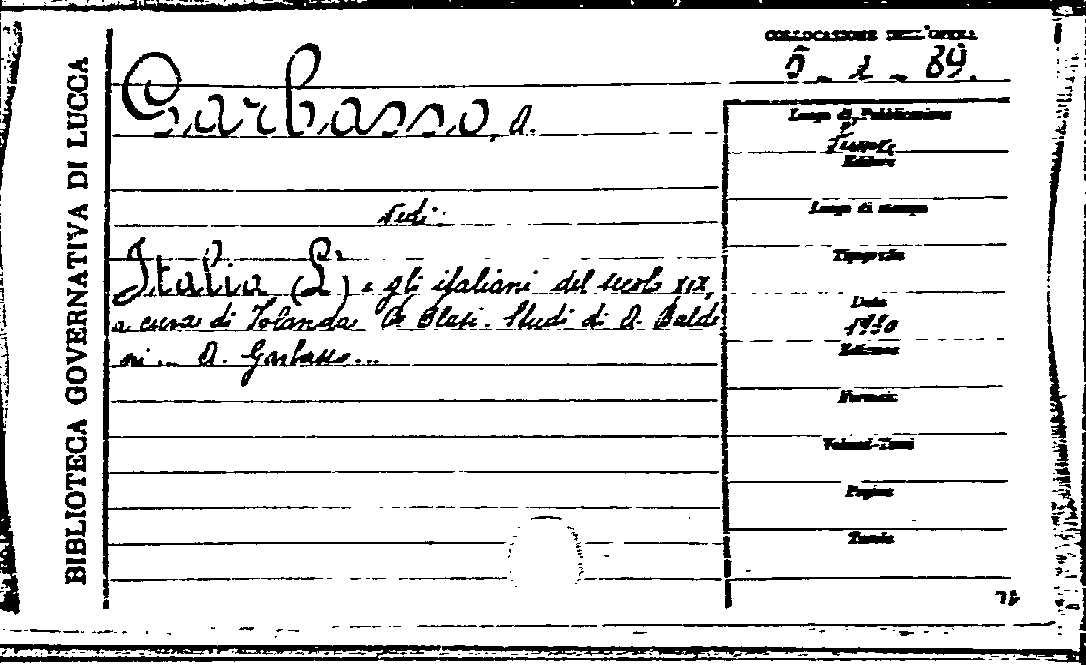 BIBLIOTECA GOVERNATIVA DI LUCCA
COLLOCAZIONE DELL'OPERA
5 - 2 - 89.
Garbasso, A.
Vedi:
Italia (L') e gli italiani del secolo XIX,
a cura di Jolanda De Blasi. Studi di A. Baldi
ni ... A. Garbasso...
Luogo di Pubblicazione
Firenze
Editore
Luogo di stampa
Tipografia
Data
1930
Edizione
Formato
Volumi-Tomi
Pagine
Tavole